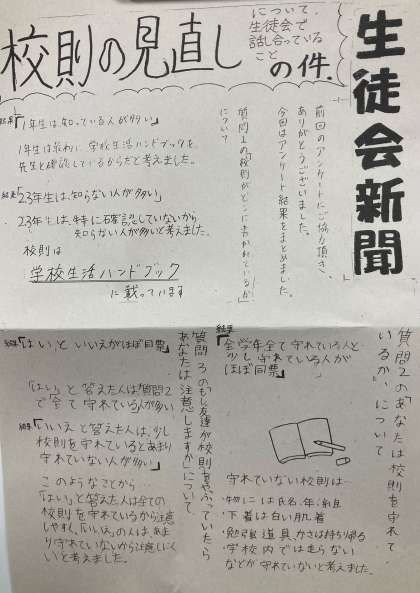 生徒会新聞
校則の見直し
について、
生徒会で
話し合っている
こと
の件.
前回のアンケートにご協力頂き、
ありがとうございました。
今回はアンケート結果をまとめました。
質問1の「校則がどこに書かれているか」
について
結果「1年生は、知っている人が多い」
1年生は最初に学校生活ハンドブックを
先生と確認しているからだと考えました。
結果「2.3年生は、知らない人が多い」
2.3年生は、特に確認していないから
知らない人が多いと考えました。
校則は
学校生活ハンドブック
に載っています
質問2の「あなたは校則を守れて
いるか」について
結果
「全学年全て守れている人と
少し守れている人が
ほぼ同票」
守れていない校則は…
・物には氏名、年、組
・下着は白い肌着
・勉強道具、かさは持ち帰る
・学校内では走らない
などが守れていないと考えました。
質問3の「もし友達が校則をやぶっていたら
あなたは注意しますか」について
結果「「はい」と いいえがほぼ同票」
「はい」と答えた人は「質問2
で全て守れている人が多い
結果
「いいえ」と答えた人は、少し
校則を守れているとあまり
守れていない人が多い」
このようなことから
「はい」と答えた人は全ての
校則を守れているから注意
しやすく、「いいえ」の人は、あま
り守れていないから注意しにく
いと考えました。